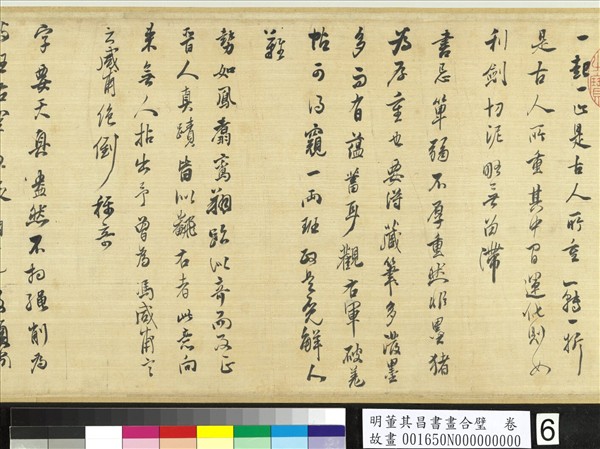 一起一止是古人所立一轉一折
是古人所重其中間運化則如
利劍切泥略無留滯
書忌單弱不厚重然非墨豬
為厚重也要得藏筆多渡墨
多而有蘊蓄耳觀右軍破羌
帖可得窺一兩班政是免解人
難
勢如鳳翥鸞翔跡似奇而反正
晉人真蹟皆似
者此意向
來無人拈出予曾為馮咸甫言
之咸甫絕倒
字要天真瀟然不拘繩削為
明董其昌書畫合璧　卷
故畫 001650N000000000
6